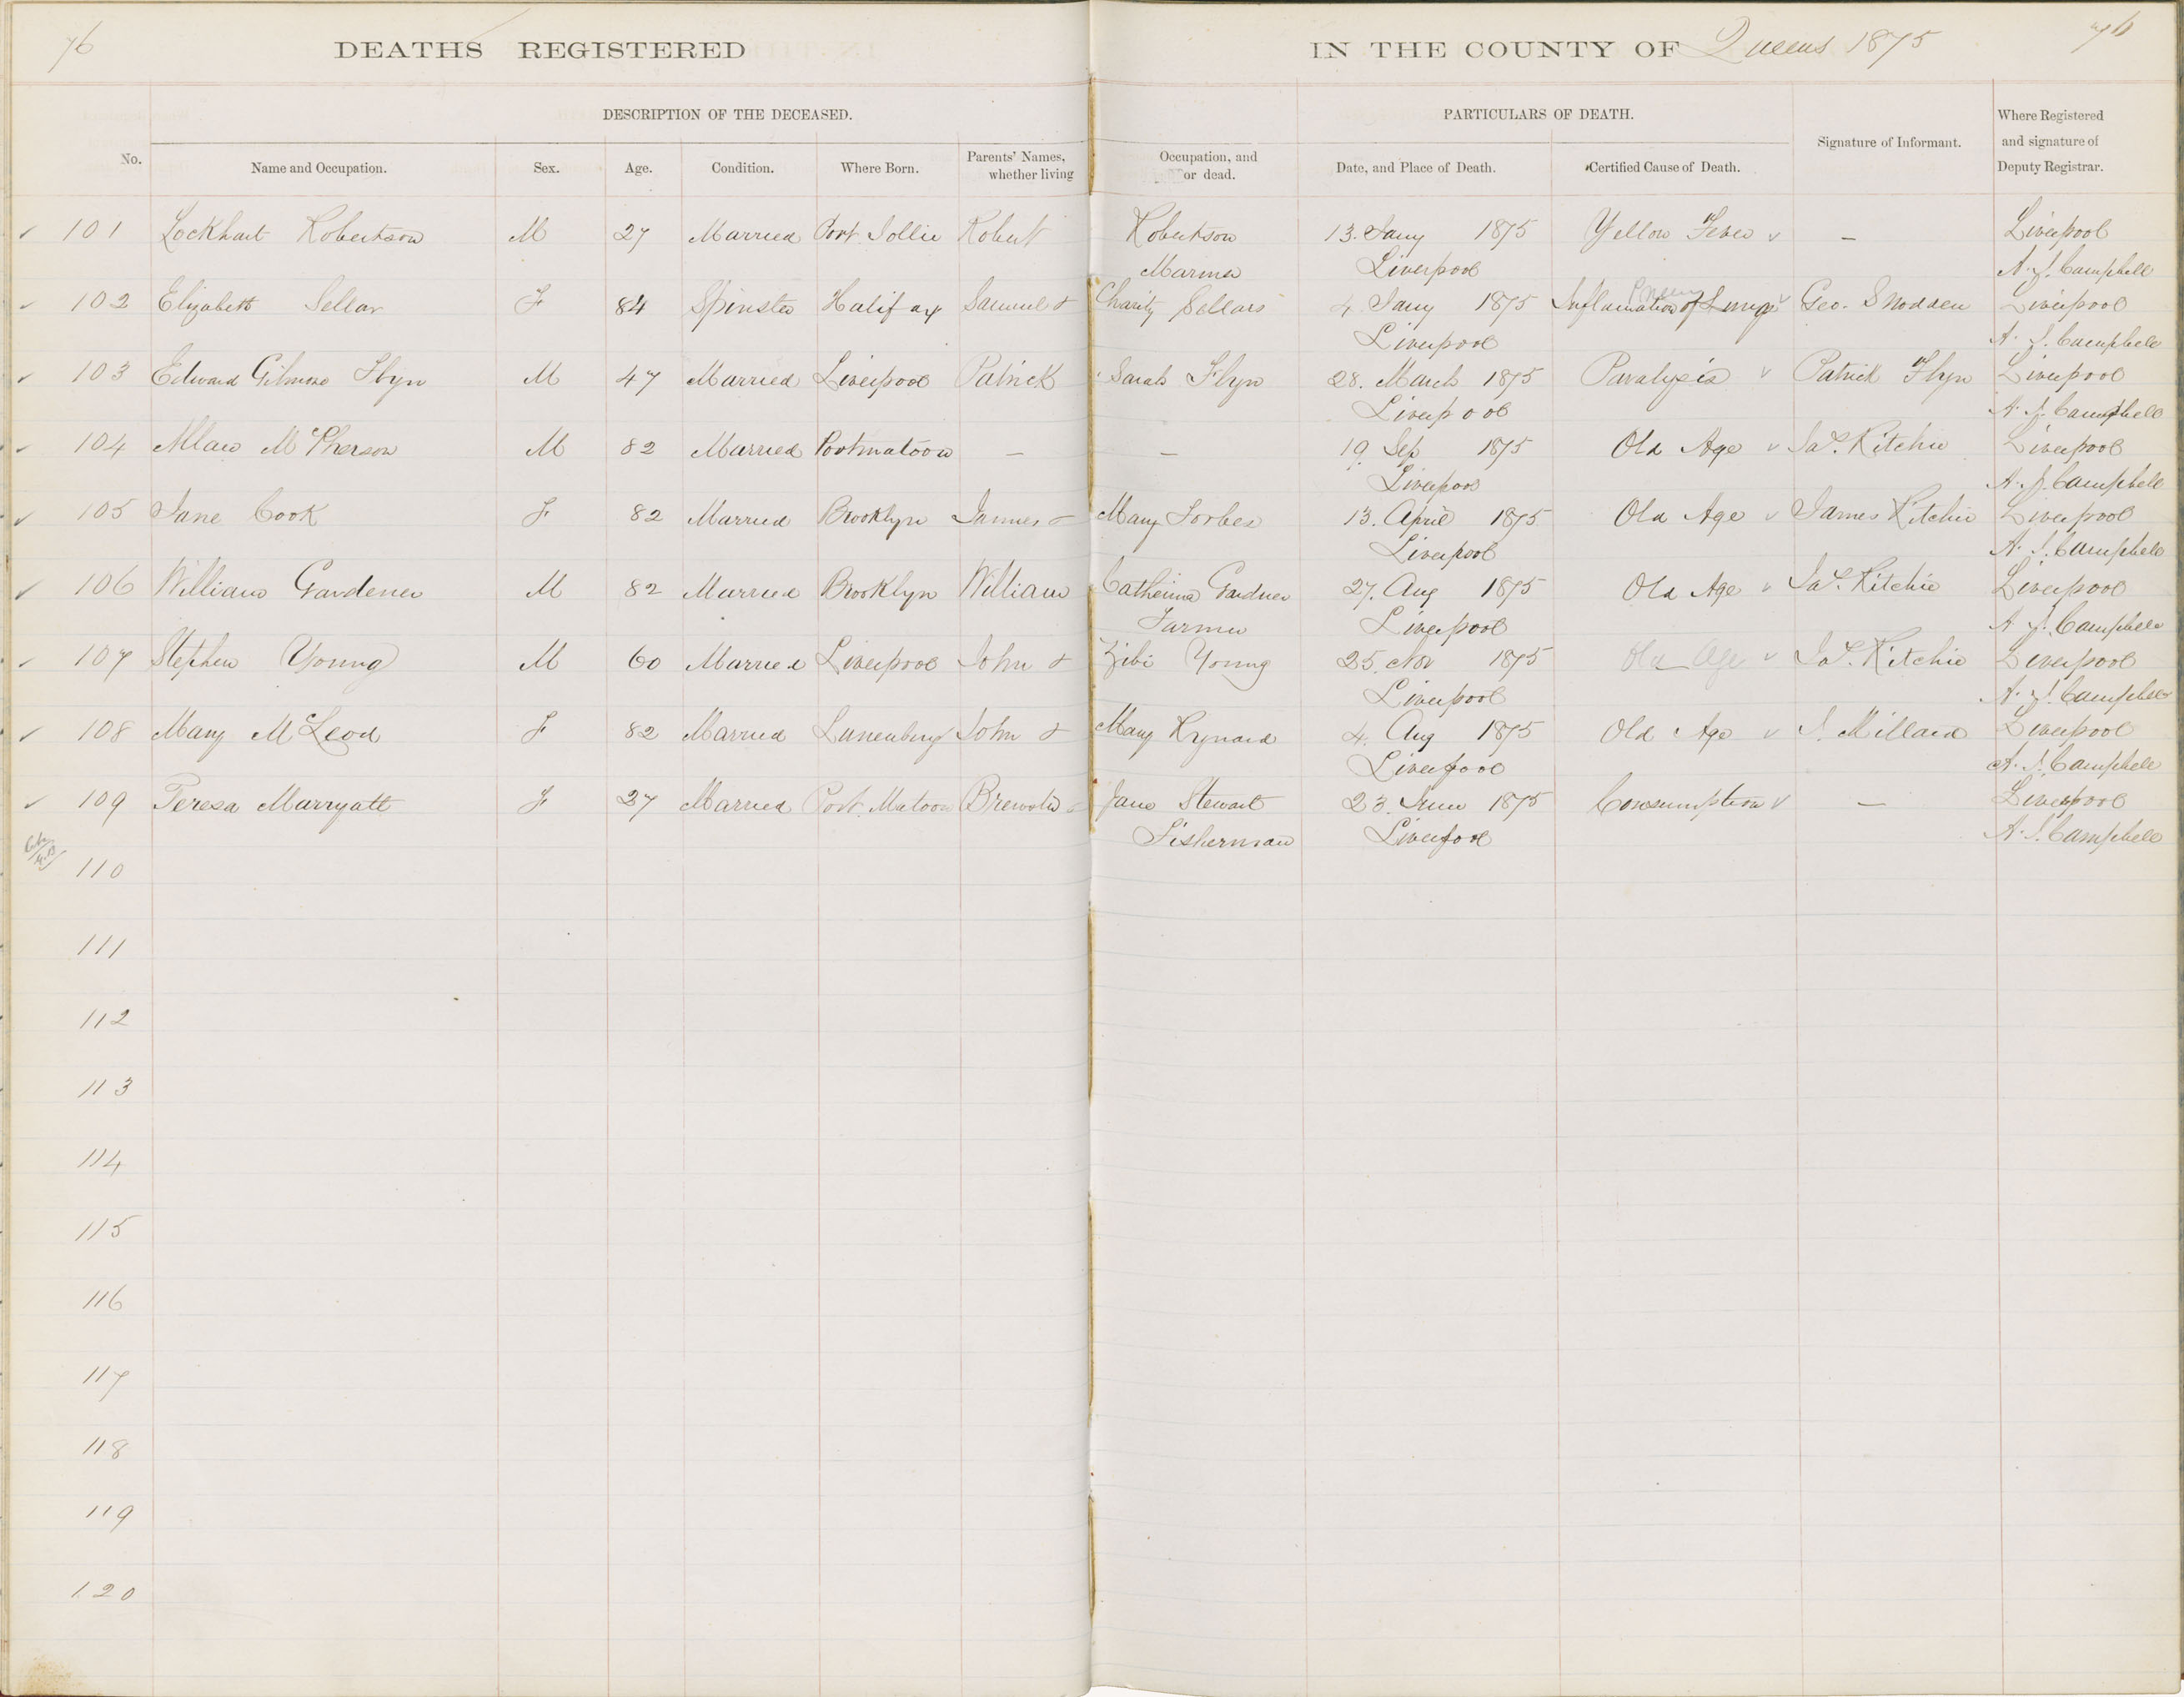 76
DEATHS REGISTERED IN THE COUNTY OF Queens 1875
76
DESCRIPTION OF THE DECEASED. PARTICULARS OF DEATH.
No. Name and Occupation. Sex. Age. Condition. Where Born. Parents' Names, whether living Occupation, and or dead. Date, and Place of Death. Certified Cause of Death. Signature of Informant. Where Registered and signature of Deputy Registrar.
101 Lockhart Robertson M 27 Married Port Jollie Robert Robertson 13. Jany 1875 Yellow Fever — Liverpool
Mariner Liverpool A. J. Campbell
102 Elizabeth Sellar F 84 Spinster Halifax Samuel & Charity Sellars 4 Jany 1875 Inflamation of Lungs Geo. Snodden Liverpool
Liverpool A. J. Campbell
103 Edward Gilmore Flyn M 47 Married Liverpool Patrick Sarah Flyn 28. March 1875 Paralysis Patrick Flyn Liverpool
Liverpool A. J. Campbell
104 Allan McPherson M 82 Married Portmatoon — — 19 Sep 1875 Old Age Jas. Ritchie Liverpool
Liverpool A. J. Campbell
105 Jane Cook F 82 Married Brooklyn James & Mary Forbes 13. April 1875 Old Age James Ritchie Liverpool
Liverpool A. J. Campbell
106 William Gardener M 82 Married Brooklyn William Catherina Gardner 27. Aug 1875 Old Age Jas. Ritchie Liverpool
Farmer Liverpool A. J. Campbell
107 Stephen Young M 60 Married Liverpool John & Zibi Young 25. Nov 1875 Old Age Jas. Ritchie Liverpool
Liverpool A. J. Campbell
108 Mary McLeod F 82 Married Lunenburg John & Mary Kynard 4. Aug 1875 Old Age S. Millard Liverpool
Liverpool A. J. Campbell
109 Teresa Marryatt F 27 Married Port Matoon Brewster & Jane Stewart 23. June 1875 Consumption — Liverpool
Fisherman Liverpool A. J. Campbell
110
111
112
113
114
115
116
117
118
119
120